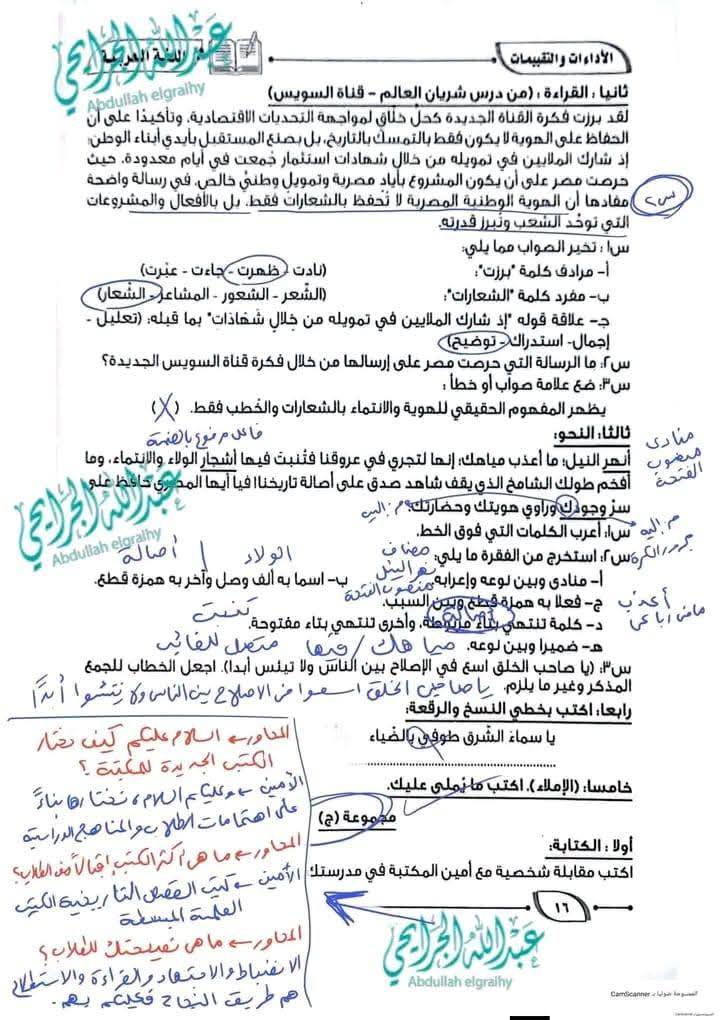 عبدالله الجرايحي
Abdullah elgraihy
الأداءات والتقييمات
اللغة العربية
ثانيا : القراءة : (من درس شريان العالم – قناة السويس)
لقد برزت فكرة القناة الجديدة كحل خلّاق لمواجهة التحديات الاقتصادية، وتأكيدًا على أن
الحفاظ على الهوية لا يكون فقط بالتمسك بالتاريخ، بل بصنع المستقبل بأيدي أبناء الوطن؛
إذ شارك الملايين في تمويله من خلال شهادات استثمار جُمعت في أيام معدودة، حيث
حرصت مصر على أن يكون المشروع بأيادٍ مصرية وتمويل وطنيٍّ خالص، في رسالة واضحة
مفادها أن الهوية الوطنية المصرية لا تُحفظ بالشعارات فقط، بل بالأفعال والمشروعات
التي توحّد الشعب وتُبرز قدرته.
س٢
س١: تخير الصواب مما يلي:
أ– مرادف كلمة "برزت": (نادت – ظهرت – جاءت – عبّرت)
ب– مفرد كلمة "الشعارات": (الشّعر – الشعور – المشاعر – الشّعار)
جـ– علاقة قوله "إذ شارك الملايين في تمويله من خلال شهادات" بما قبله: (تعليل –
إجمال– استدراك – توضيح)
س٢: ما الرسالة التي حرصت مصر على إرسالها من خلال فكرة قناة السويس الجديدة؟
س٣: ضع علامة صواب أو خطأ :
يظهر المفهوم الحقيقي للهوية والانتماء بالشعارات والخطب فقط. (X)
ثالثا: النحو:
فاعل مرفوع بالضمة
منادى
منصوب
الفتحة
أنهر النيل؛ ما أعذب مياهك؛ إنها لتجري في عروقنا فتُنبت فيها أشجار الولاء والانتماء، وما
أفخم طولك الشامخ الذي يقف شاهد صدق على أصالة تاريخنا! فيا أيها المصري حافظ على
سرّ وجودك وراوي هويتك وحضارتك.
م. إليه
مجرور الكسرة
عبدالله الجرايحي
Abdullah elgraihy
س١: أعرب الكلمات التي فوق الخط.
س٢: استخرج من الفقرة ما يلي:
مضاف
الولاء | أصالة
نهر النيل
أ– منادى وبين نوعه وإعرابه. ب– اسما به ألف وصل وآخر به همزة قطع.
منصوب الفتحة
ج– فعلا به همزة قطع وبين السبب.
أعذب
ماض رباعي
د– كلمة تنتهي بتاء مربوطة، وأخرى تنتهي بتاء مفتوحة.
أصالة
تنبت
هـ– ضميرا وبين نوعه.
مياهك / فيها متصل للغائب
س٣: (يا صاحب الخلق اسع في الإصلاح بين الناس ولا تيئس أبدا). اجعل الخطاب للجمع
المذكر وغير ما يلزم.
الخلق اسعوا في الاصلاح بين الناس ولا أبدًا
رابعا: اكتب بخطي النسخ والرقعة:
يا سماءَ الشّرق طوفي بالضياء
خامسا: (الإملاء). اكتب ما يُملى عليك.
مجموعة (ج)
أولا : الكتابة:
اكتب مقابلة شخصية مع أمين المكتبة في مدرستك
المحاور ← السلام عليكم كيف نختار
الكتب الجديدة للمكتبة ؟
الأمين ← وعليكم السلام، نختارها بناءً
على اهتمامات الطلاب والمناهج الدراسية
المحاور ← ما هي أكثر الكتب إقبالاً من الطلاب؟
الأمين ← كتب القصص التاريخية الكتب
العلمية المبسطة
المحاور ← ما هي نصيحتك للطلاب؟
الانضباط والاجتهاد والقراءة والاستطلاع
هم طريق النجاح فعليكم بهم.
١٦
عبدالله الجرايحي
Abdullah elgraihy
الممسوحة ضوئيا بـ CamScanner